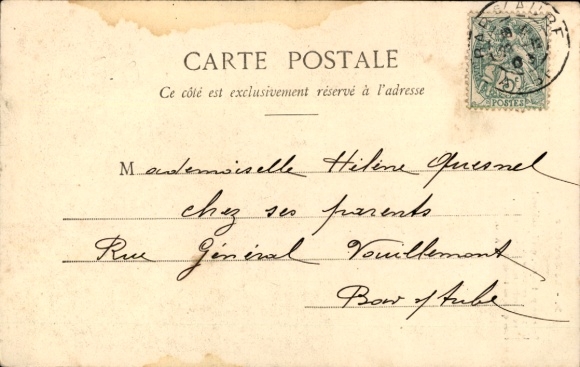 CARTE POSTALE
Ce côté est exclusivement réservé à l'adresse
Mademoiselle Hélène Quesnel
chez ses parents
Rue Général Vouillemont
Bar s/Aube
BAR-S-AUBE
POSTES